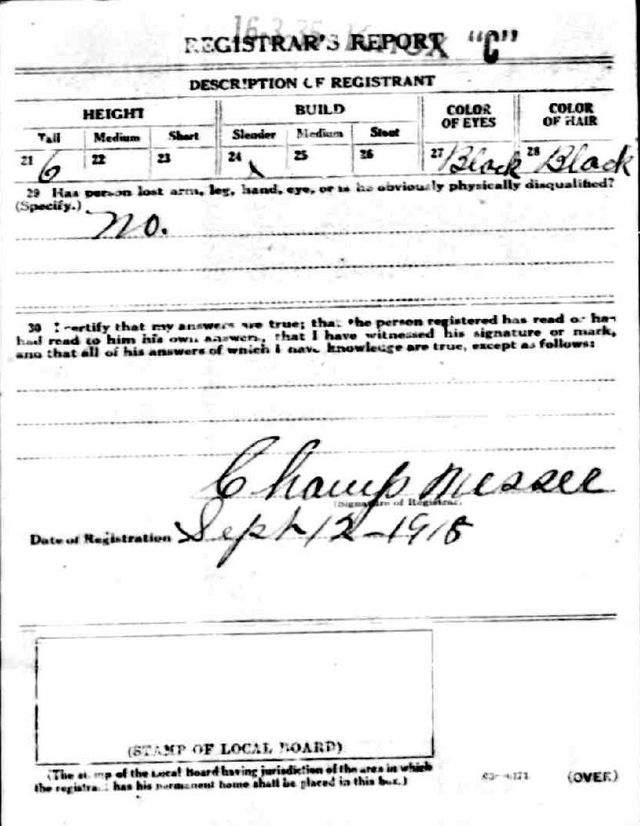 REGISTRAR'S REPORT "C"
DESCRIPTION OF REGISTRANT
HEIGHT BUILD COLOR OF EYES COLOR OF HAIR
Tall Medium Short Slender Medium Stout
21 6 22 23 24 25 26 27 Black 28 Black
29 Has person lost arm, leg, hand, eye, or is he obviously physically disqualified?
(Specify.) No.
30 I certify that my answers are true; that the person registered has read or has
had read to him his own answers, that I have witnessed his signature or mark,
and that all of his answers of which I have knowledge are true, except as follows:
Champ Messer
(Signature of Registrar)
Date of Registration Sept 12-1918
(STAMP OF LOCAL BOARD)
(The stamp of the Local Board having jurisdiction of the area in which
the registrant has his permanent home shall be placed in this box.)
(OVER)